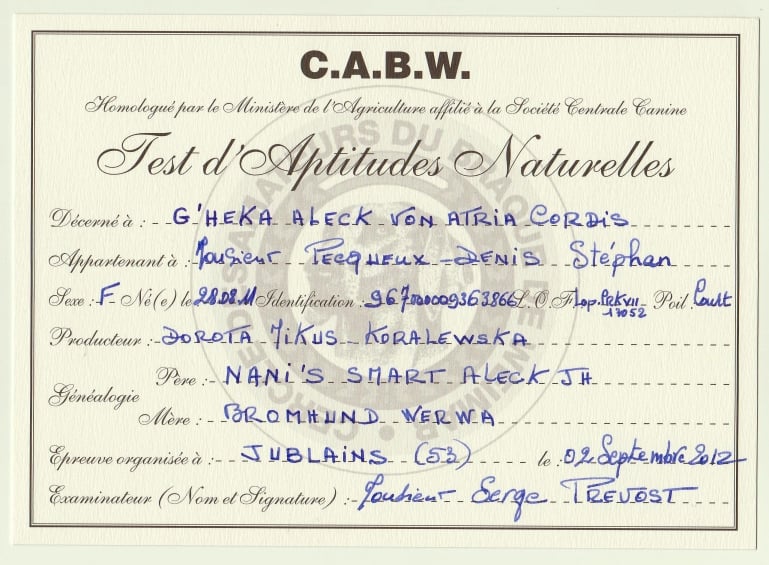 C.A.B.W.
Homologué par le Ministère de l'Agriculture affilié à la Société Centrale Canine
Test d'Aptitudes Naturelles
Décerné à : G'HEKA ALECK VON ATRIA CORDIS
Appartenant à : Monsieur PECQUEUX-DENIS Stéphan
Sexe : F Né(e) le 28.08.11 Identification : 967000009363866 L.O.F. Lop. PKR VII 13052 Poil : Court
Producteur : DOROTA MIKUS KORALEWSKA
Généalogie Père : NANI'S SMART ALECK JH
Mère : BROMHUND WERWA
Epreuve organisée à : JUBLAINS (53) le : 02 Septembre 2012
Examinateur (Nom et Signature) : Monsieur Serge PREVOST